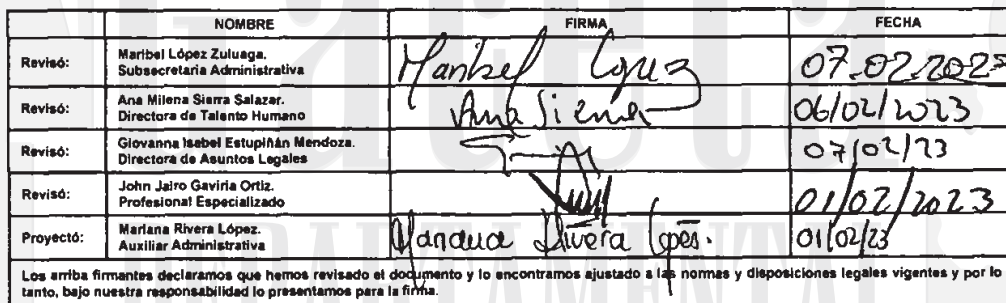 NOMBRE FIRMA FECHA
Revisó: Maribel López Zuluaga. Subsecretaria Administrativa Maribel López 07-02-2023
Revisó: Ana Milena Sierra Salazar. Directora de Talento Humano Ana Sierra 06/02/2023
Revisó: Giovanna Isabel Estupiñán Mendoza. Directora de Asuntos Legales 07/02/23
Revisó: John Jairo Gaviria Ortiz. Profesional Especializado 01/02/2023
Proyectó: Mariana Rivera López. Auxiliar Administrativa Mariana Rivera López. 01/02/23
Los arriba firmantes declaramos que hemos revisado el documento y lo encontramos ajustado a las normas y disposiciones legales vigentes y por lo
tanto, bajo nuestra responsabilidad lo presentamos para la firma.